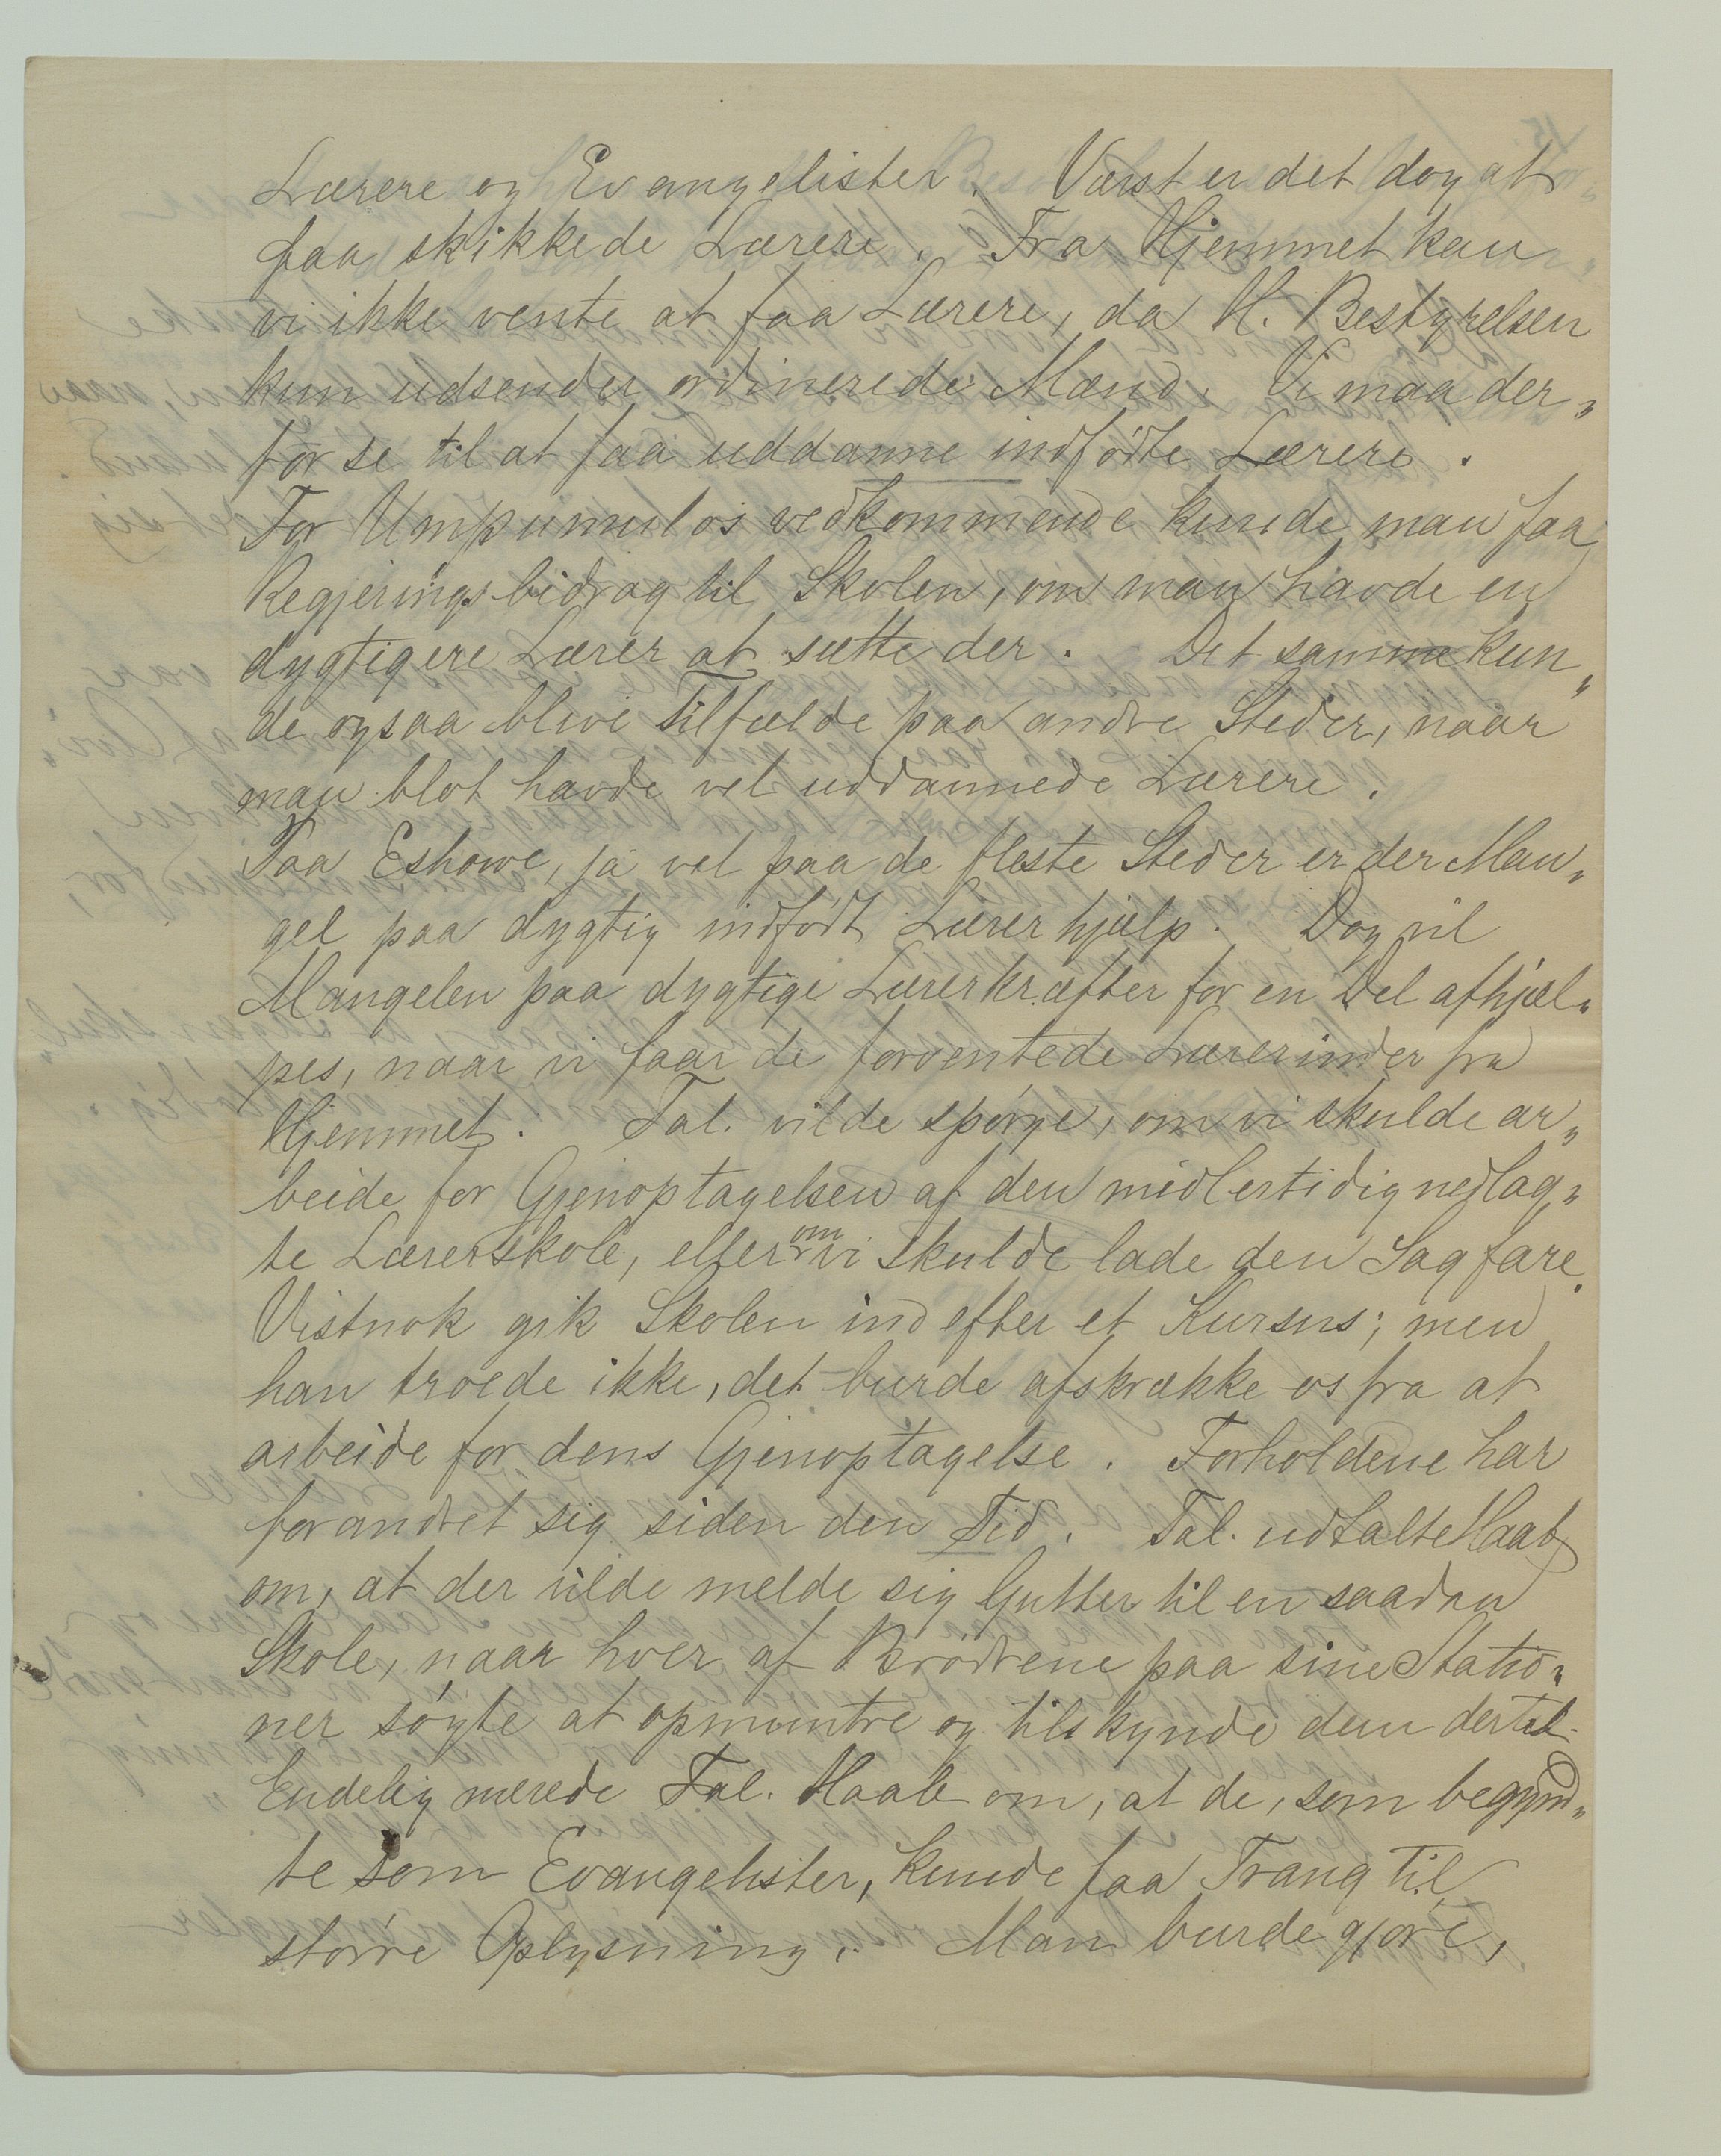 Lærere og Evangelister. Værst er det dog at
faa skikkede Lærere. Fra Hjemmet kan
vi ikke vente at faa Lærere, da H. Bestyrelsen
kun udsender ordinerede Mænd. Vi maa der„
for se til at faa uddanne indfödte Lærere.
For Umpumulos vedkommende kunde man faa
Regjeringsbidrag til Skolen, om man havde en
dygtigere Lærer at sætte der. Det samme kun„
de ogsaa blive Tilfælde paa andre Steder, naar
man blot havde vel uddannede Lærere.
Paa Eshowe, ja vel paa de fleste Steder er der Man„
gel paa dygtig indfödt Lærerhjælp. Dog vil
Mangelen paa dygtige Lærerkræfter for en Del afhjæl„
pes, naar vi faar de forventede Lærerinder fra
Hjemmet. Tal. vilde spörge, om vi skulde ar„
beide for Gjenoptagelsen af den midlertidig nedlag„
te Lærerskole, eller om vi skulde lade den Sag fare.
Vistnok gik Skolen ind efter et Kursus; men
han troede ikke, det burde afskrække os fra at
arbeide for dens Gjenoptagelse. Forholdene har
forandret sig siden den Tid. Tal. udtalte Haab
om, at der vilde melde sig Gutter til en saadan
Skole, naar hver af Brödrene paa sine Statio„
ner sögte at opmuntre og tilskynde dem dertil.
Endelig nærede Tal. Haab om, at de, som begynd„
te som Evangelister, kunde faa Trang til
större Oplysning. Man burde gjöre,